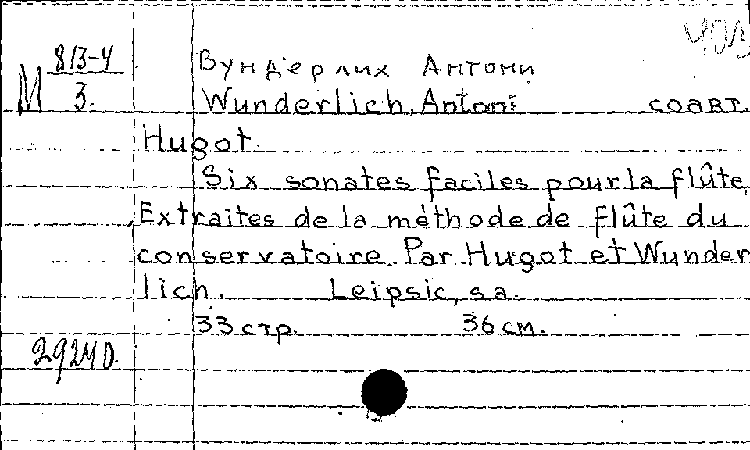 М 813-4
3.
Вундерлих Антони
Wunderlich, Antoni соавт.
Hugot.
Six sonates faciles pour la flûte,
Extraites de la méthode de flûte du
conservatoire. Par Hugot et Wunder
lich. Leipsic, s.a.
33 стр. 36 см.